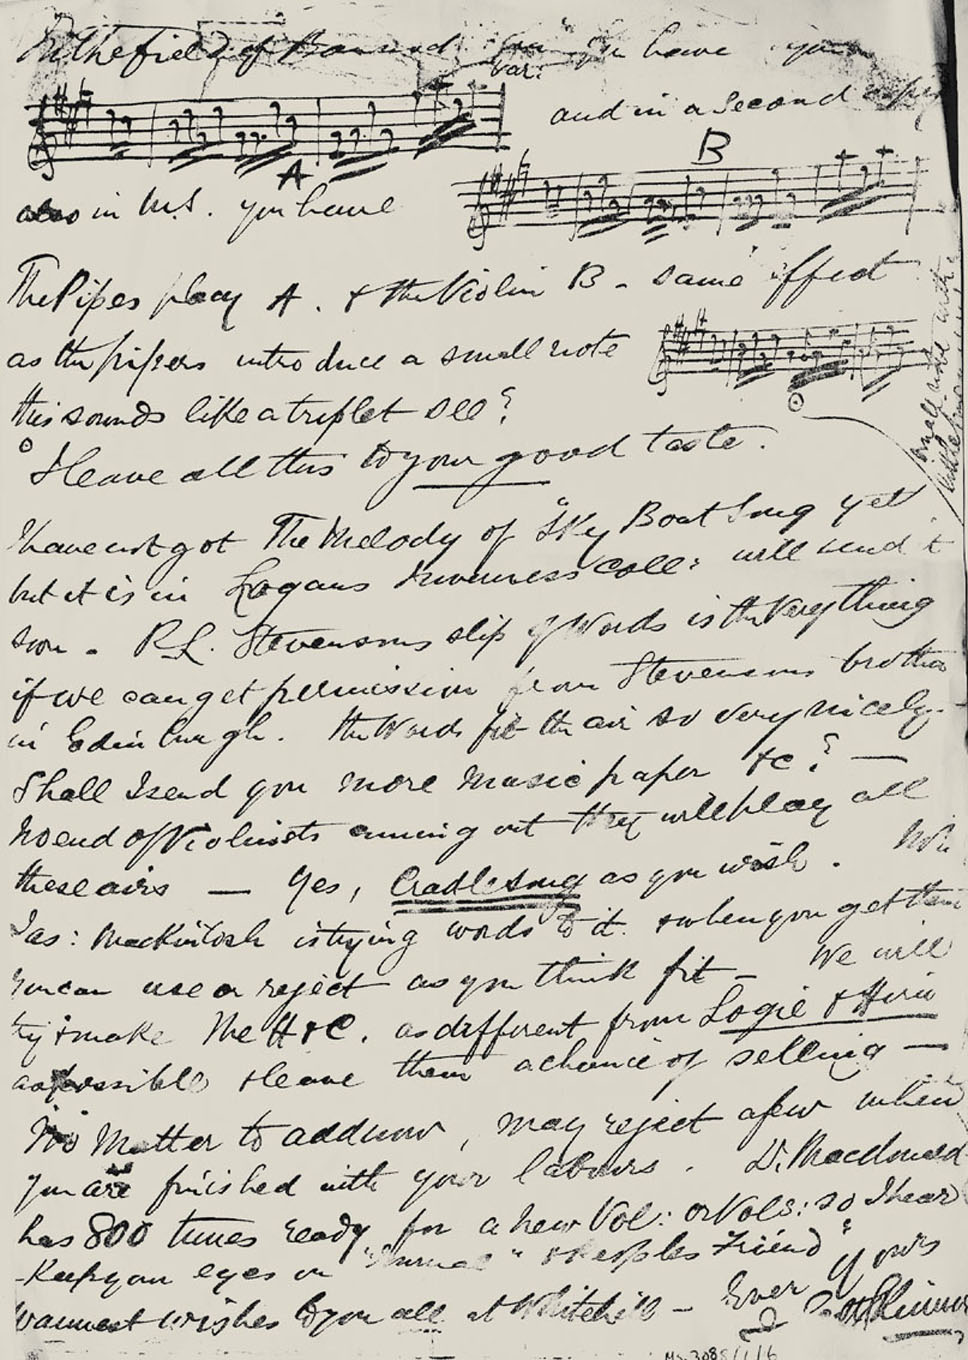 In the field of you have you
var:
and in a Second copy
A
B
also in M.S. you have
The Pipes play A. & the Violin B - same effect
as the pipers introduce a small note
this sounds like a triplet see?
small note with
I leave all this to your good taste.
I have not got The Melody of "Sky Boat Song yet
but it is in Logans Inverness Coll: will send it
soon - R.L. Stevensons slip of Words is the very thing
if we can get permission from Stevensons brother
in Edinburgh. the Words fit the air so very nicely -
Shall I send you more Music paper &c? —
No end of Violinists coming out they will play all
these airs — Yes, Cradle Song as you wish.
Jas: Mackintosh is trying words to it. & when you get them
you can use or reject as you think fit — We will
try & make The H & C. as different from Logie &
as possible & leave them a chance of selling —
No Matter to add now, may reject a few when
you are finished with your labours. D. Macdonald
has 800 tunes ready for a new Vol: or Vols: so I hear
- Keep your eyes on " " & Peoples Friend"
warmest wishes to you all at Whitehill - Ever Yours
J Scott Skinner
MS.3088/1/6